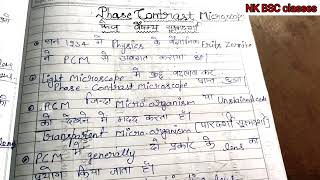 NK BSC classes
Phase Contrast Microscope
सन 1934 में Physics के वैज्ञानिक Frits Zernike
ने PCM से अवगत कराया था।
Light Microscope में कुछ बदलाव कर
Phase-Contrast Microscope बना हुआ
PCM जिन्दा Microorganism या Unstained cells
को देखने में मदद करता है।
transparent Micro-organism [पारदर्शी सूक्ष्मजीव]
PCM में generally दो प्रकार के lens का
प्रयोग किया जाता है।